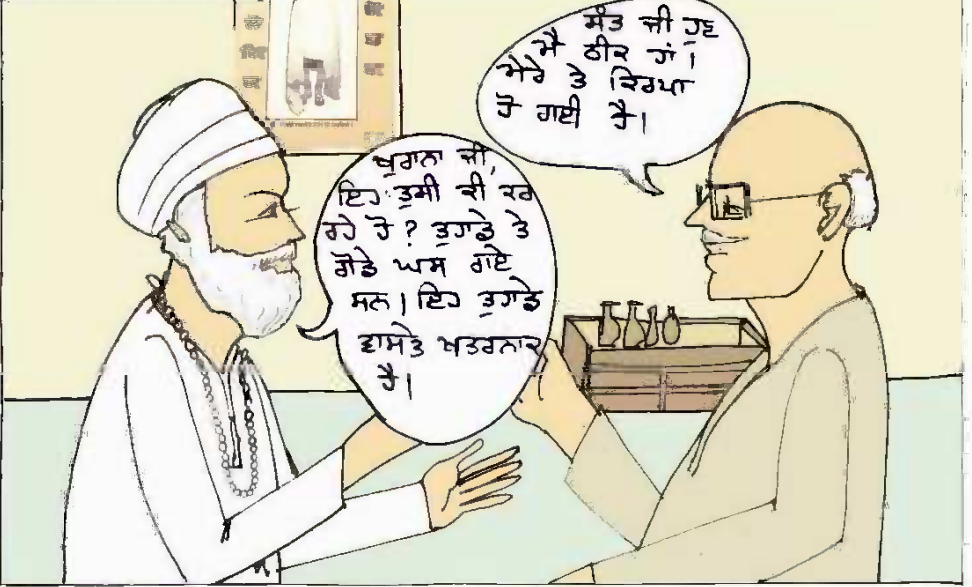 ਖੁਰਾਨਾ ਜੀ,
ਇਹ ਤੁਸੀ ਕੀ ਕਰ
ਰਹੇ ਹੋ? ਤੁਹਾਡੇ ਤੇ
ਗੋਡੇ ਘਸ ਗਏ
ਸਨ। ਇਹ ਤੁਹਾਡੇ
ਵਾਸਤੇ ਖਤਰਨਾਕ
ਹੈ।
ਸੰਤ ਜੀ ਹੁਣ
ਮੈ ਠੀਕ ਹਾਂ।
ਮੇਰੇ ਤੇ ਕਿਰਪਾ
ਹੋ ਗਈ ਹੈ।